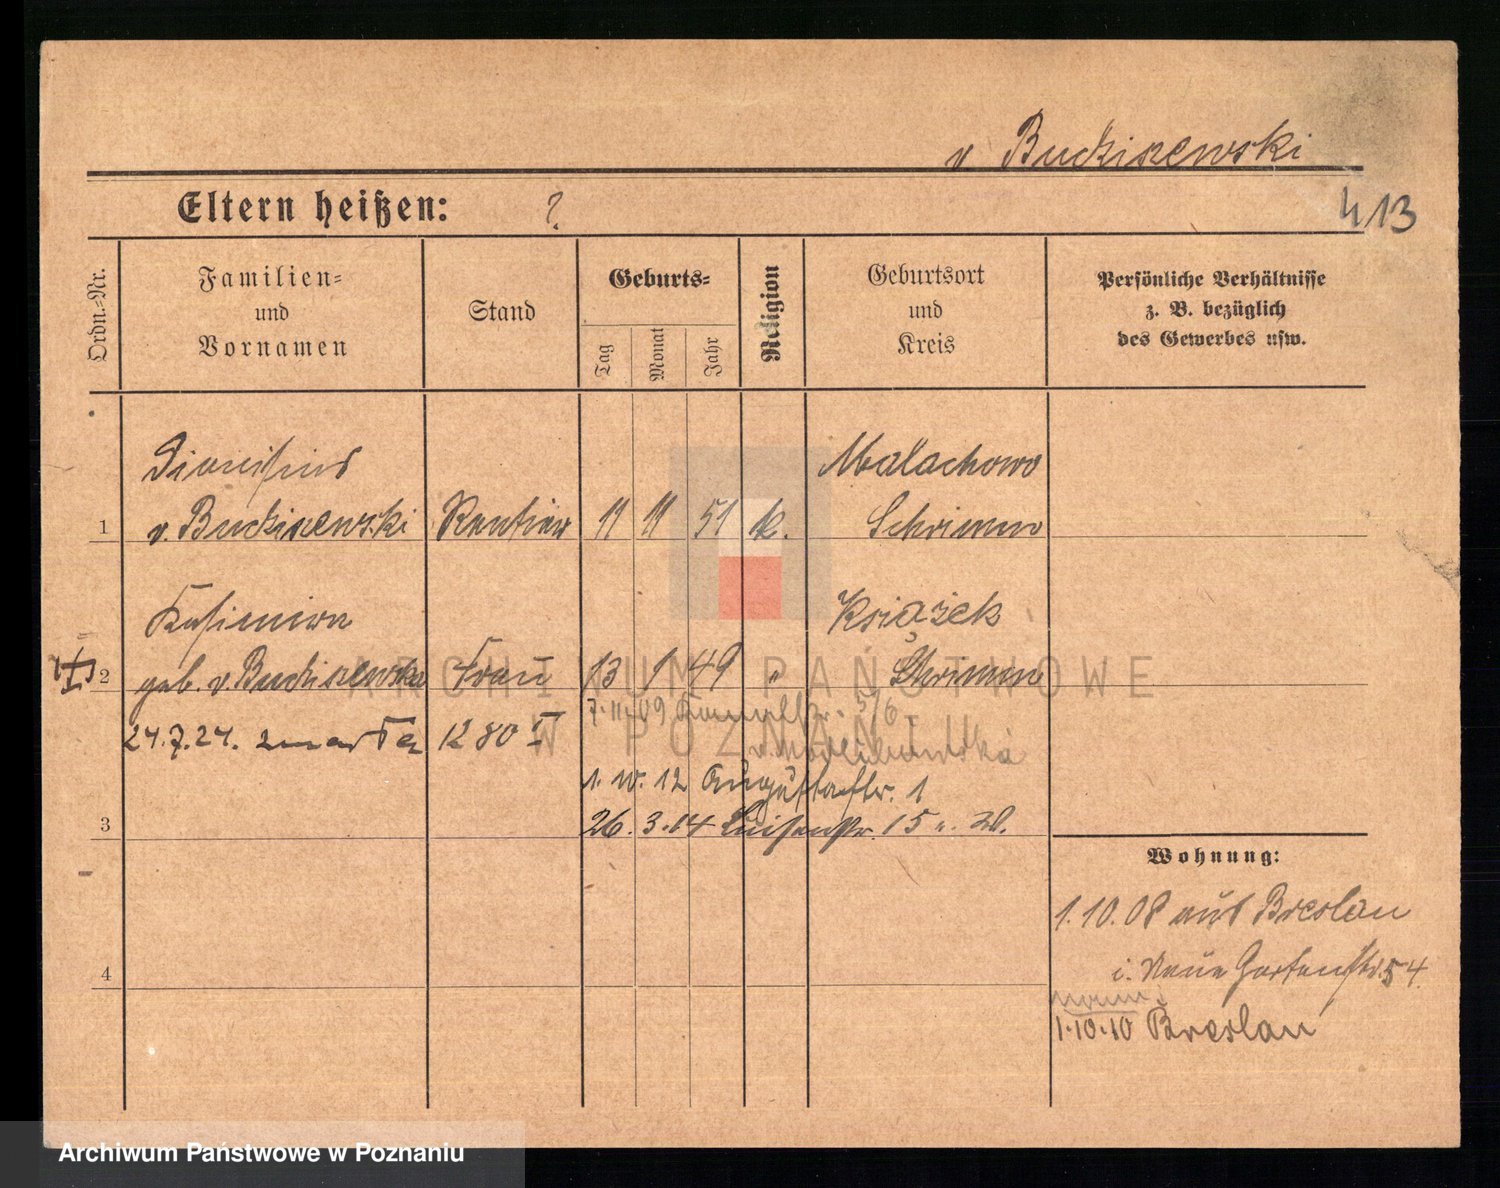 v Budziszewski
413
Eltern heißen: ?
Ordn.-Nr.
Familien-
und
Vornamen
Stand
Geburts-
Tag
Monat
Jahr
Religion
Geburtsort
und
Kreis
Persönliche Verhältnisse
z. B. bezüglich
des Gewerbes usw.
Dionisius
Małachowo
1 v. Budziszewski Rentier 11 11 51 k. Schrimm
Kasimira
Książek
2 geb. v. Budziszewska Frau 13 1 49 " Schrimm
7.11.09 5/6
24.7.24. zmarła 1280 I
1. 10. 12 Augustastr. 1
3 26.3.14 Luisenstr. 15
Wohnung:
1.10.08 aus Breslau
4 i. Neue Gartenstr. 54
1.10.10 Breslau
ARCHIWUM PAŃSTWOWE
W POZNANIU
Archiwum Państwowe w Poznaniu